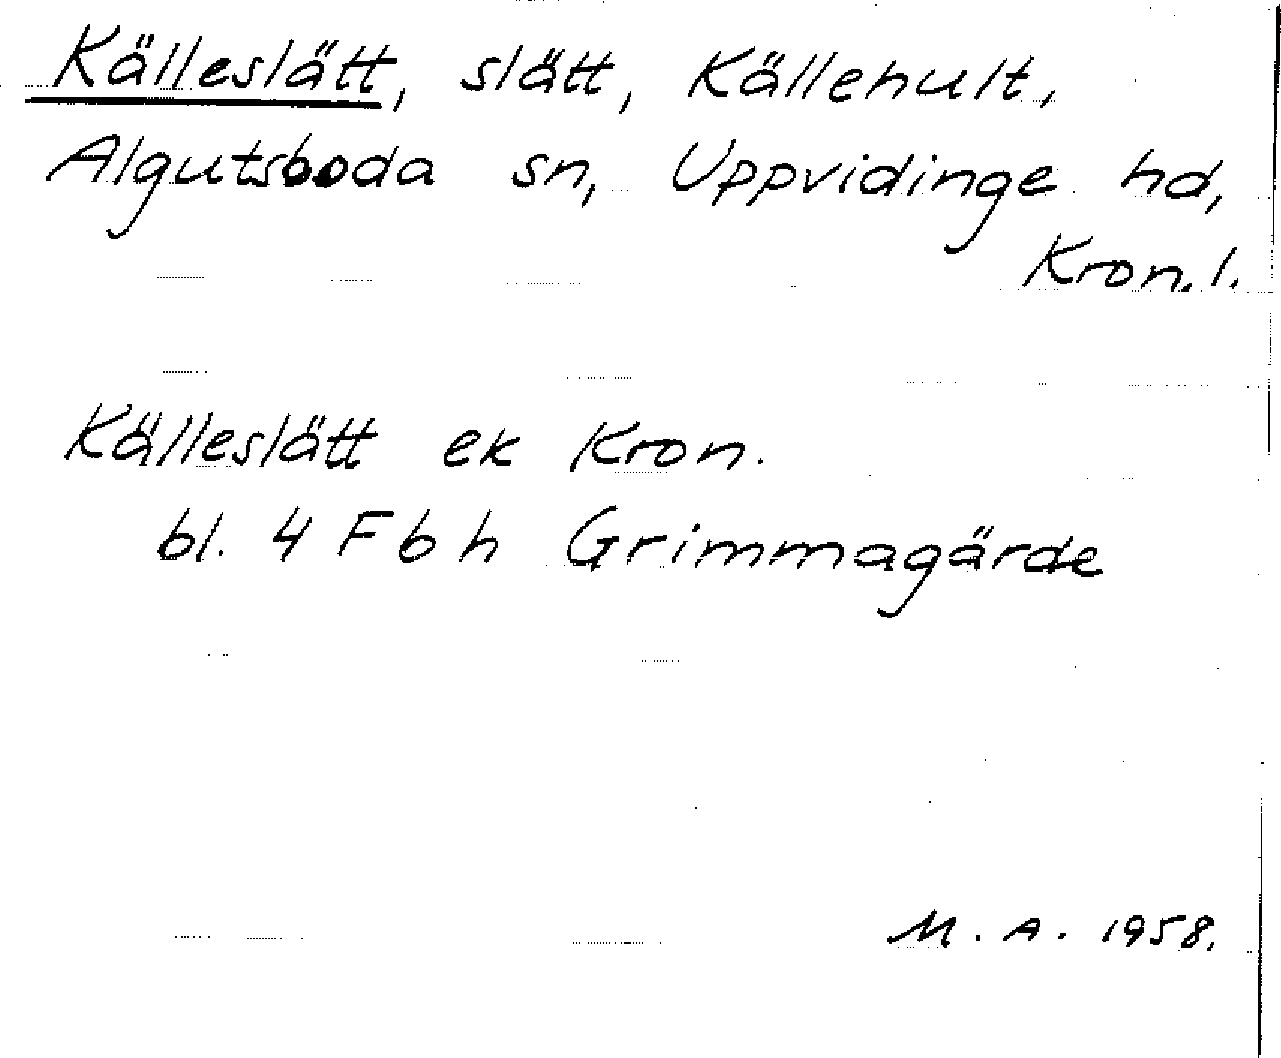 Källeslätt, slätt, Källehult,
Algutsboda sn, Uppvidinge hd,
Kron.l.
Källeslätt ek Kron.
bl. 4 F b h Grimmagärde
M. A. 1958.